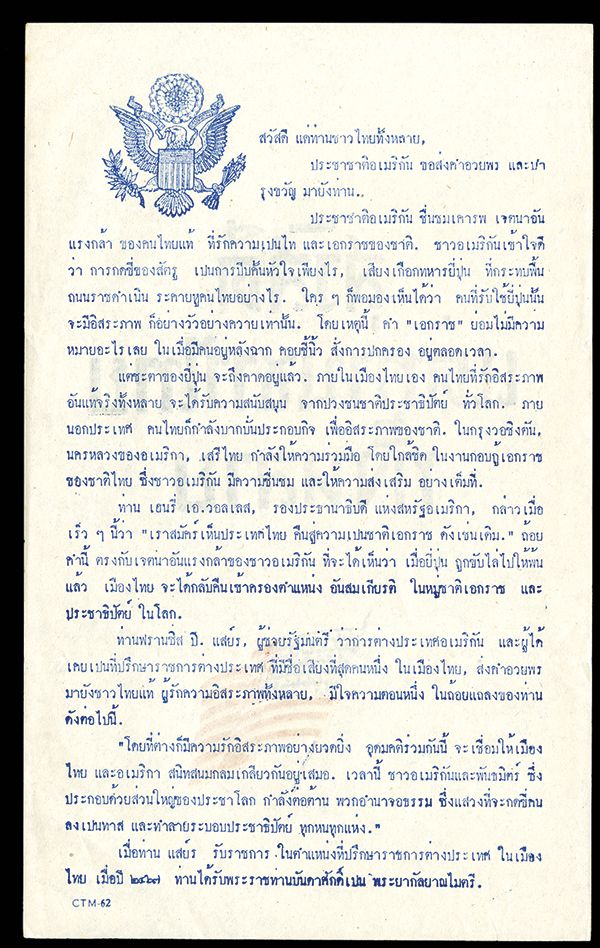 สวัสดี แด่ท่านชาวไทยทั้งหลาย,
ประชาชาติอเมริกัน ขอส่งคำอวยพร และบำ
รุงขวัญ มายังท่าน.
ประชาชาติอเมริกัน ชื่นชมเคารพ เจตนาอัน
แรงกล้า ของคนไทยแท้ ที่รักความเปนไท และเอกราชของชาติ. ชาวอเมริกันเข้าใจดี
ว่า การกดขี่ของสัตรู เปนการบีบคั้นหัวใจเพียงไร, เสียงเกือกทหารยี่ปุ่น ที่กระทบพื้น
ถนนราชดำเนิน ระคายหูคนไทยอย่างไร. ใคร ๆ ก็พอมองเห็นได้ว่า คนที่รับใช้ยี่ปุ่นนั้น
จะมีอิสระภาพ ก็อย่างวัวอย่างควายเท่านั้น. โดยเหตุนี้ คำ "เอกราช" ยอมไม่มีความ
หมายอะไรเลย ในเมื่อมีคนอยู่หลังฉาก คอยชี้นิ้ว สั่งการปกครอง อยู่ตลอดเวลา.
แต่ชะตาของยี่ปุ่น จะถึงคาดอยู่แล้ว. ภายในเมืองไทยเอง คนไทยที่รักอิสระภาพ
อันแท้จริงทั้งหลาย จะได้รับความสนับสนุน จากปวงชนชาติประชาธิปัตย์ ทั่วโลก. ภาย
นอกประเทศ คนไทยก็กำลังบากบั่นประกอบกิจ เพื่ออิสระภาพของชาติ. ในกรุงวอชิงตัน,
นครหลวงของอเมริกา, เสรีไทย กำลังให้ความร่วมมือ โดยใกล้ชิด ในงานกอบกู้เอกราช
ของชาติไทย ซึ่งชาวอเมริกัน มีความชื่นชม และให้ความส่งเสริม อย่างเต็มที่.
ท่าน เฮนรี่ เอ.วอลเลส, รองประธานาธิบดี แห่งสหรัฐอเมริกา, กล่าวเมื่อ
เร็ว ๆ นี้ว่า "เราสมัคร์เห็นประเทศไทย คืนสู่ความเปนชาติเอกราช ดังเช่นเดิม." ถ้อย
คำนี้ ตรงกับเจตนาอันแรงกล้าของชาวอเมริกัน ที่จะได้เห็นว่า เมื่อยี่ปุ่น ถูกขับไล่ไปให้พ้น
แล้ว เมืองไทย จะได้กลับคืนเข้าครองตำแหน่ง อันสมเกียรติ ในหมู่ชาติเอกราช และ
ประชาธิปัตย์ ในโลก.
ท่านฟรานซิส บี. แสย์ร, ผู้ช่วยรัฐมนตรี ว่าการต่างประเทศอเมริกัน และผู้ได้
เคยเปนที่ปรึกษาราชการต่างประเทศ ที่มีชื่อเสียงที่สุดคนหนึ่ง ในเมืองไทย, ส่งคำอวยพร
มายังชาวไทยแท้ ผู้รักความอิสระภาพทั้งหลาย, มีใจความตอนหนึ่ง ในถ้อยแถลงของท่าน
ดังต่อไปนี้.
"โดยที่ต่างก็มีความรักอิสระภาพอย่างยวดยิ่ง อุดมคติร่วมกันนี้ จะเชื่อมให้เมือง
ไทย และอเมริกา สนิทสนมกลมเกลียวกันอยู่เสมอ. เวลานี้ ชาวอเมริกันและพันธมิตร์ ซึ่ง
ประกอบด้วยส่วนใหญ่ของประชาโลก กำลังต่อต้าน พวกอำนาจอธรรม ซึ่งแสวงที่จะกดขี่คน
ลงเปนทาส และทำลายระบอบประชาธิปัตย์ ทุกหนทุกแห่ง."
เมื่อท่าน แสย์ร รับราชการ ในตำแหน่งที่ปรึกษาราชการต่างประเทศ ในเมือง
ไทย เมื่อปี ๒๔๖๗ ท่านได้รับพระราชทานบันดาศักดิ์เปน พระยากัลยาณไมตรี.
CTM-62